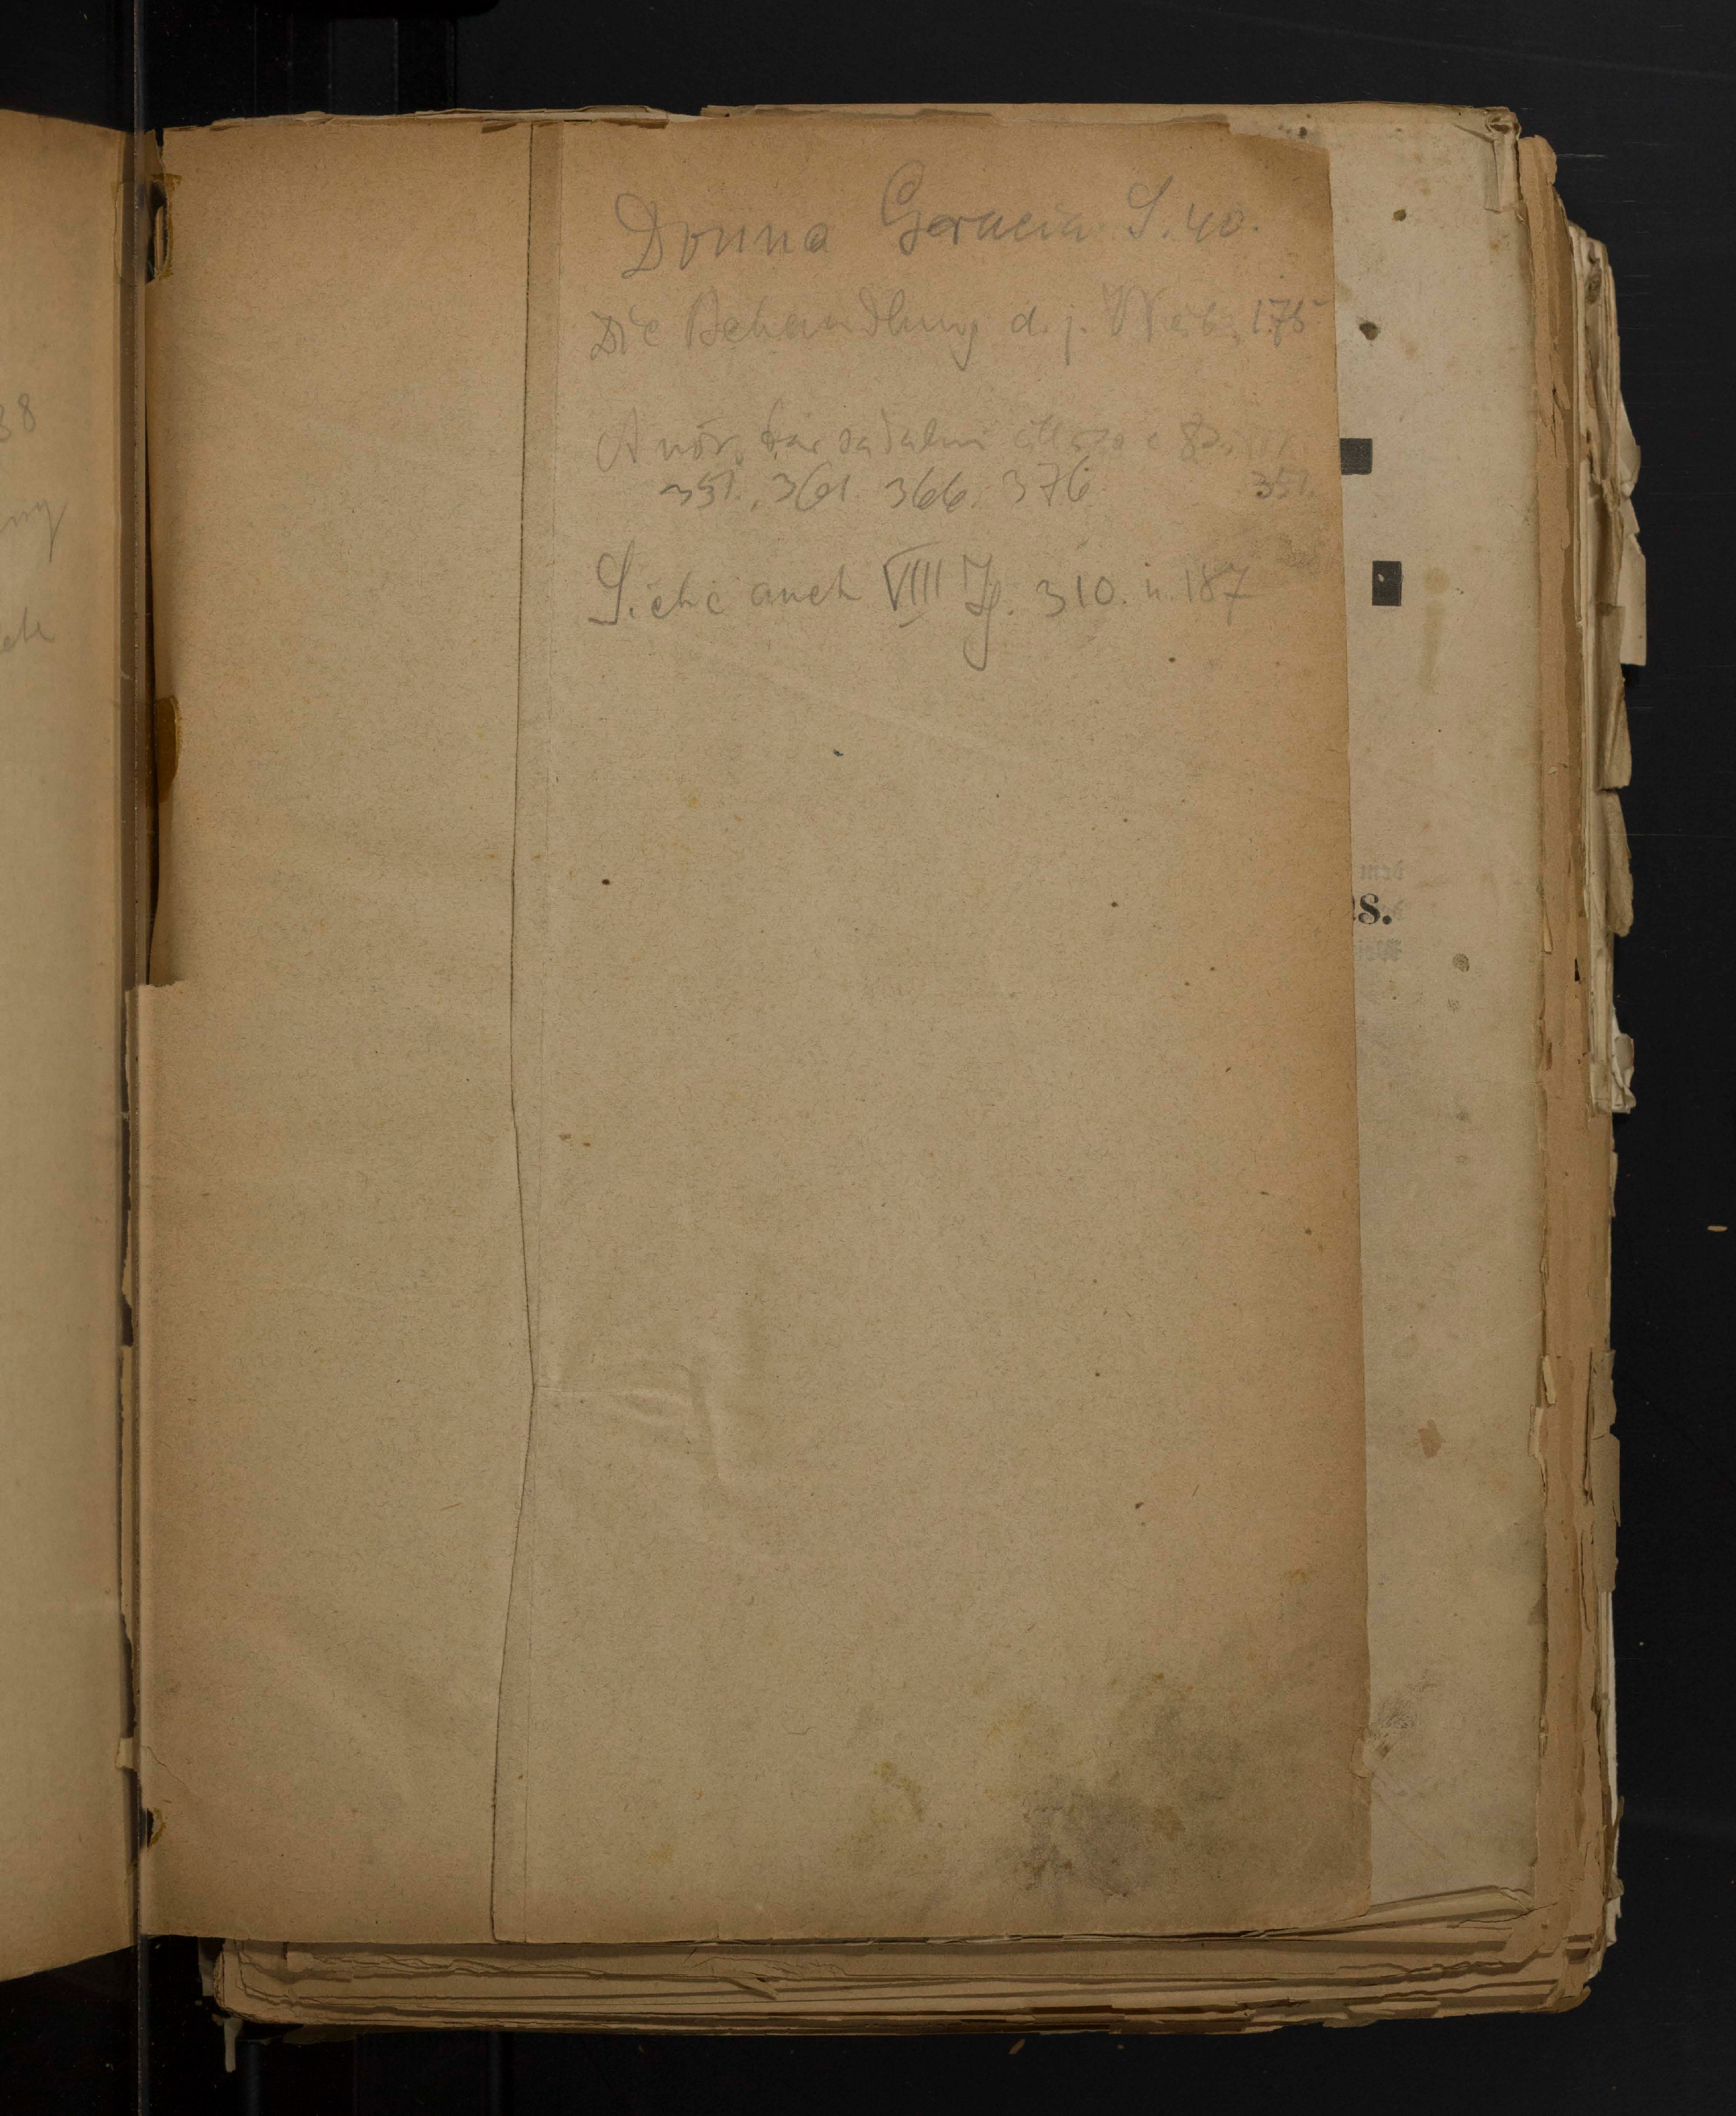 Donna Gracia S. 40.
Die Behandlung d. j. Weib. 175
A nők társadalmi
351. 361. 366. 376 351.
Siehe auch VIII Jg. 310. u. 187
38
s.